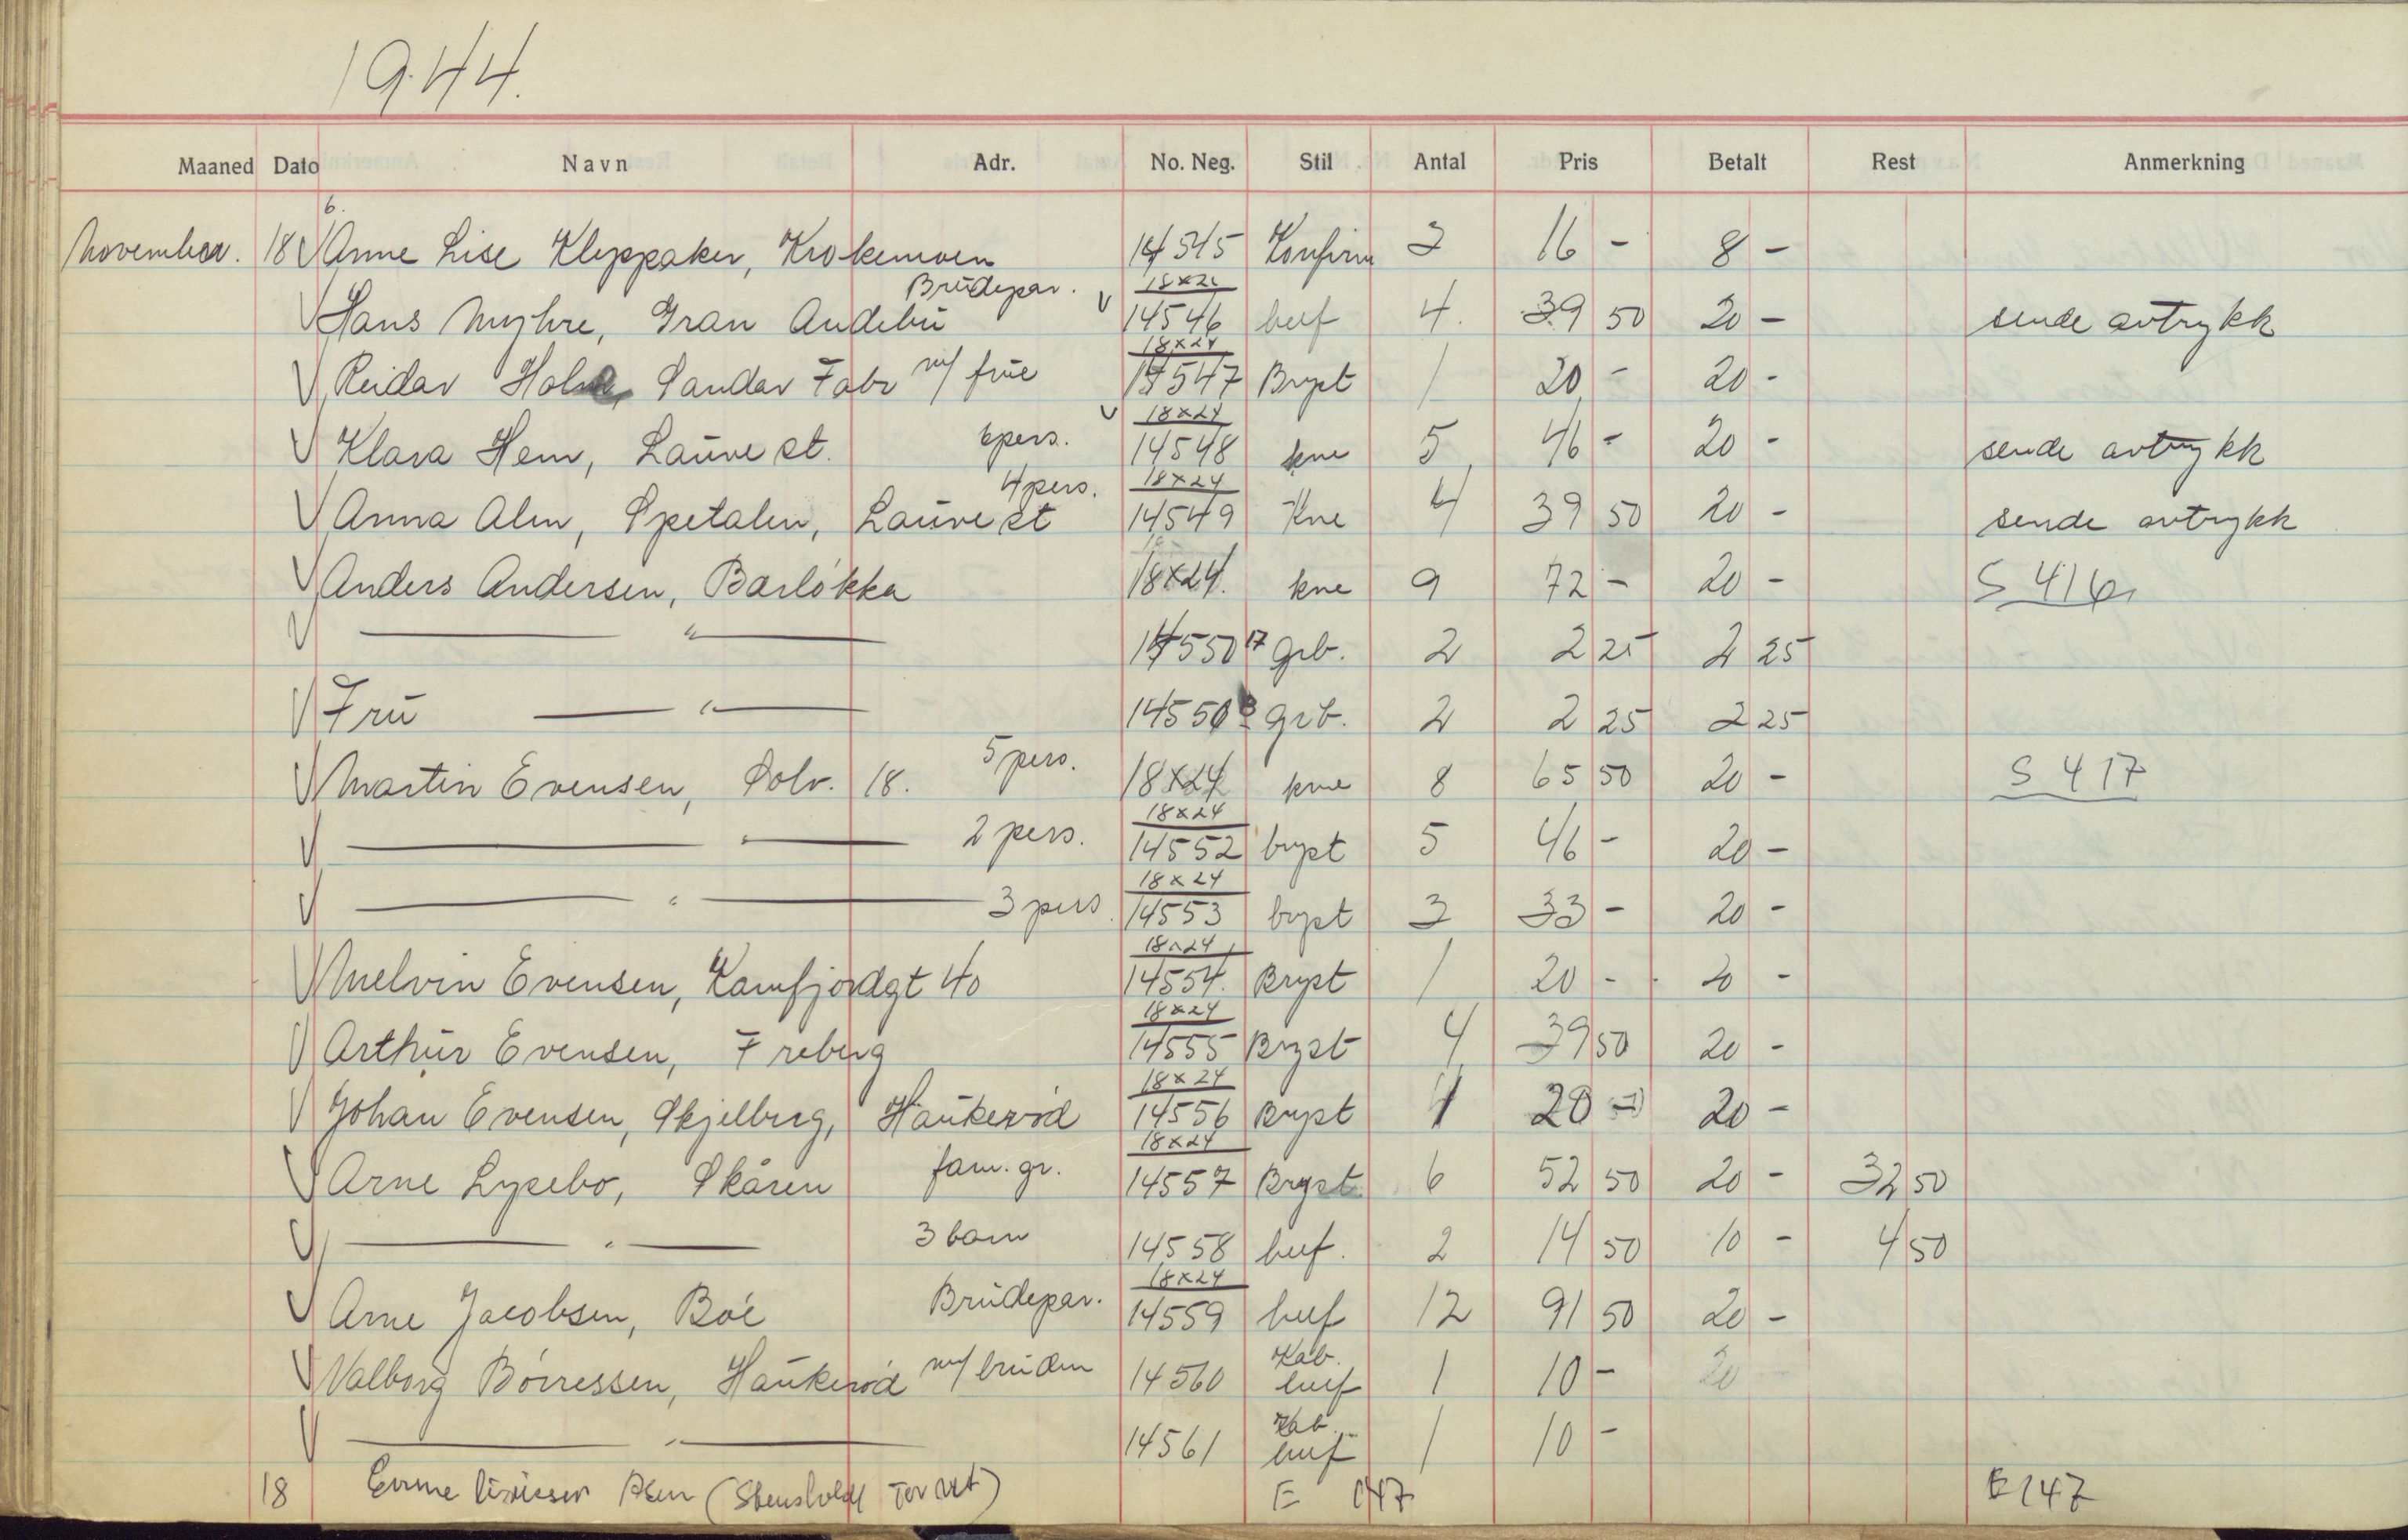 1944.
Maaned Dato Navn Adr. No. Neg. Stil Antal Pris Betalt Rest Anmerkning
6.
November. 18 Anne Lise Kleppaker, Krokemoen 14545 Konfirm 3 16 - 8 -
Brudepar. 18x24
Hans Myhre, Gran Andebu 14546 helf 4. 39 50 20 - sende avtrykk
18x24
Reidar Holm, Sandar Fabr m/ frue 14547 Bryst 1 20 - 20 -
18x24
Klara Hem, Lauve st. 6 pers. 14548 kne 5 46 - 20 - sende avtrykk
4 pers. 18x24
Anna Alm, Spetalen, Lauve st 14549 Kne 4 39 50 20 - sende avtrykk
Anders Andersen, Barløkka 18x24. kne 9 72 - 20 - S 416
— " — 14550 grb. 2 2 25 2 25
Fru — " — 14550 grb. 2 2 25 2 25
Martin Evensen, Solv. 18. 5 pers. 18x24 kne 8 65 50 20 - S 417
18x24
— " — 2 pers. 14552 bryst 5 46 - 20 -
18x24
— " — 3 pers. 14553 bryst 3 33 - 20 -
18x24
Melvin Evensen, Kamfjordgt 40 14554. Bryst 1 20 - 20 -
18x24
Arthur Evensen, Freberg 14555 Bryst 4 39 50 20 -
18x24
Johan Evensen, Skjelberg, Haukerød 14556 Bryst 1 20 - 20 -
18x24
Arne Lysebo, Skåren fam. gr. 14557 Bryst 6 52 50 20 - 32 50
— " — 3 barn 14558 helf. 2 14 50 10 - 4 50
18x24
Arne Jacobsen, Bøe Brudepar. 14559 helf 12 91 50 20 -
Kab.
Valborg Børressen, Haukerød m/ bruden 14560 helf 1 10 - 20
Kab.
— " — 14561 helf 1 10 -
18 E 147 E 147